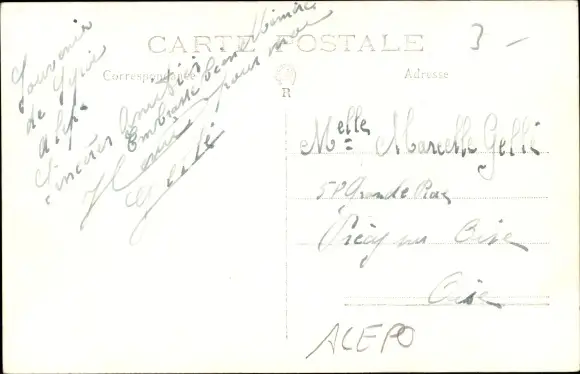 CARTE POSTALE
Correspondance
Adresse
R
3 -
Souvenir
de Syrie
Alep
Sincères Amitiés
Embrasse bien Mémère
pour moi
Melle Marcelle Gellé
58 Grande Rue
Précy sur Oise
Oise
ACEPO